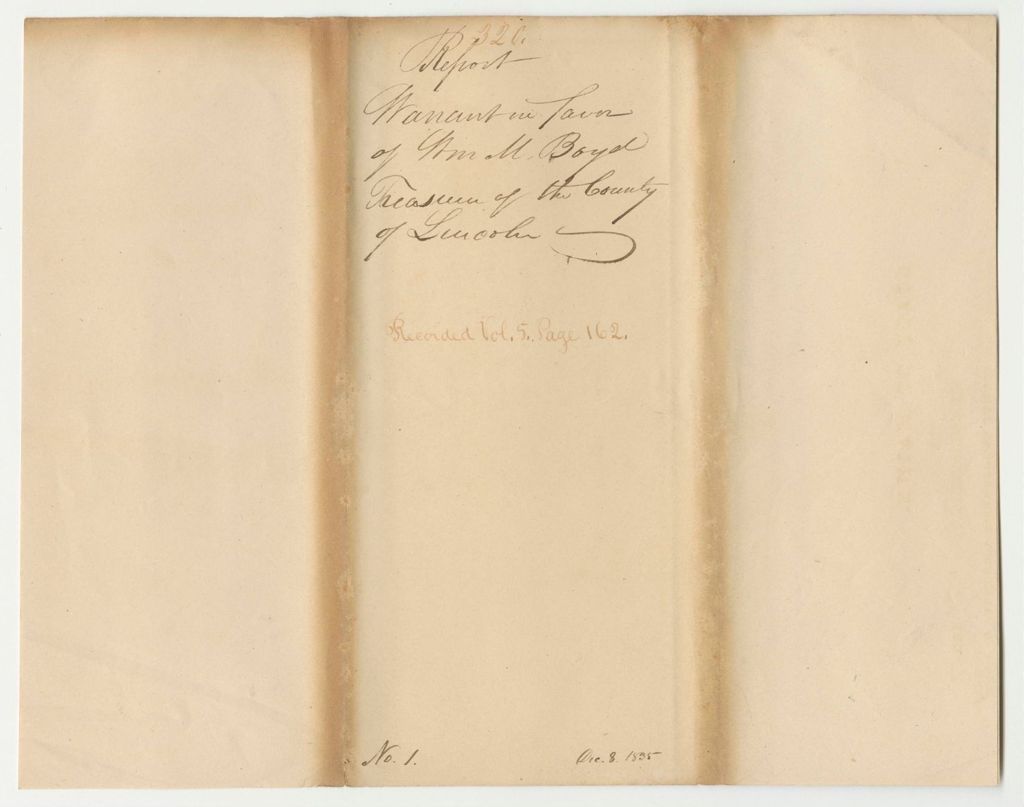 320.
Report
Warrant in favor
of Wm M. Boyd
Treasurer of the County
of Lincoln
Recorded Vol. 5. Page 162.
No. 1. Dec. 8. 1835